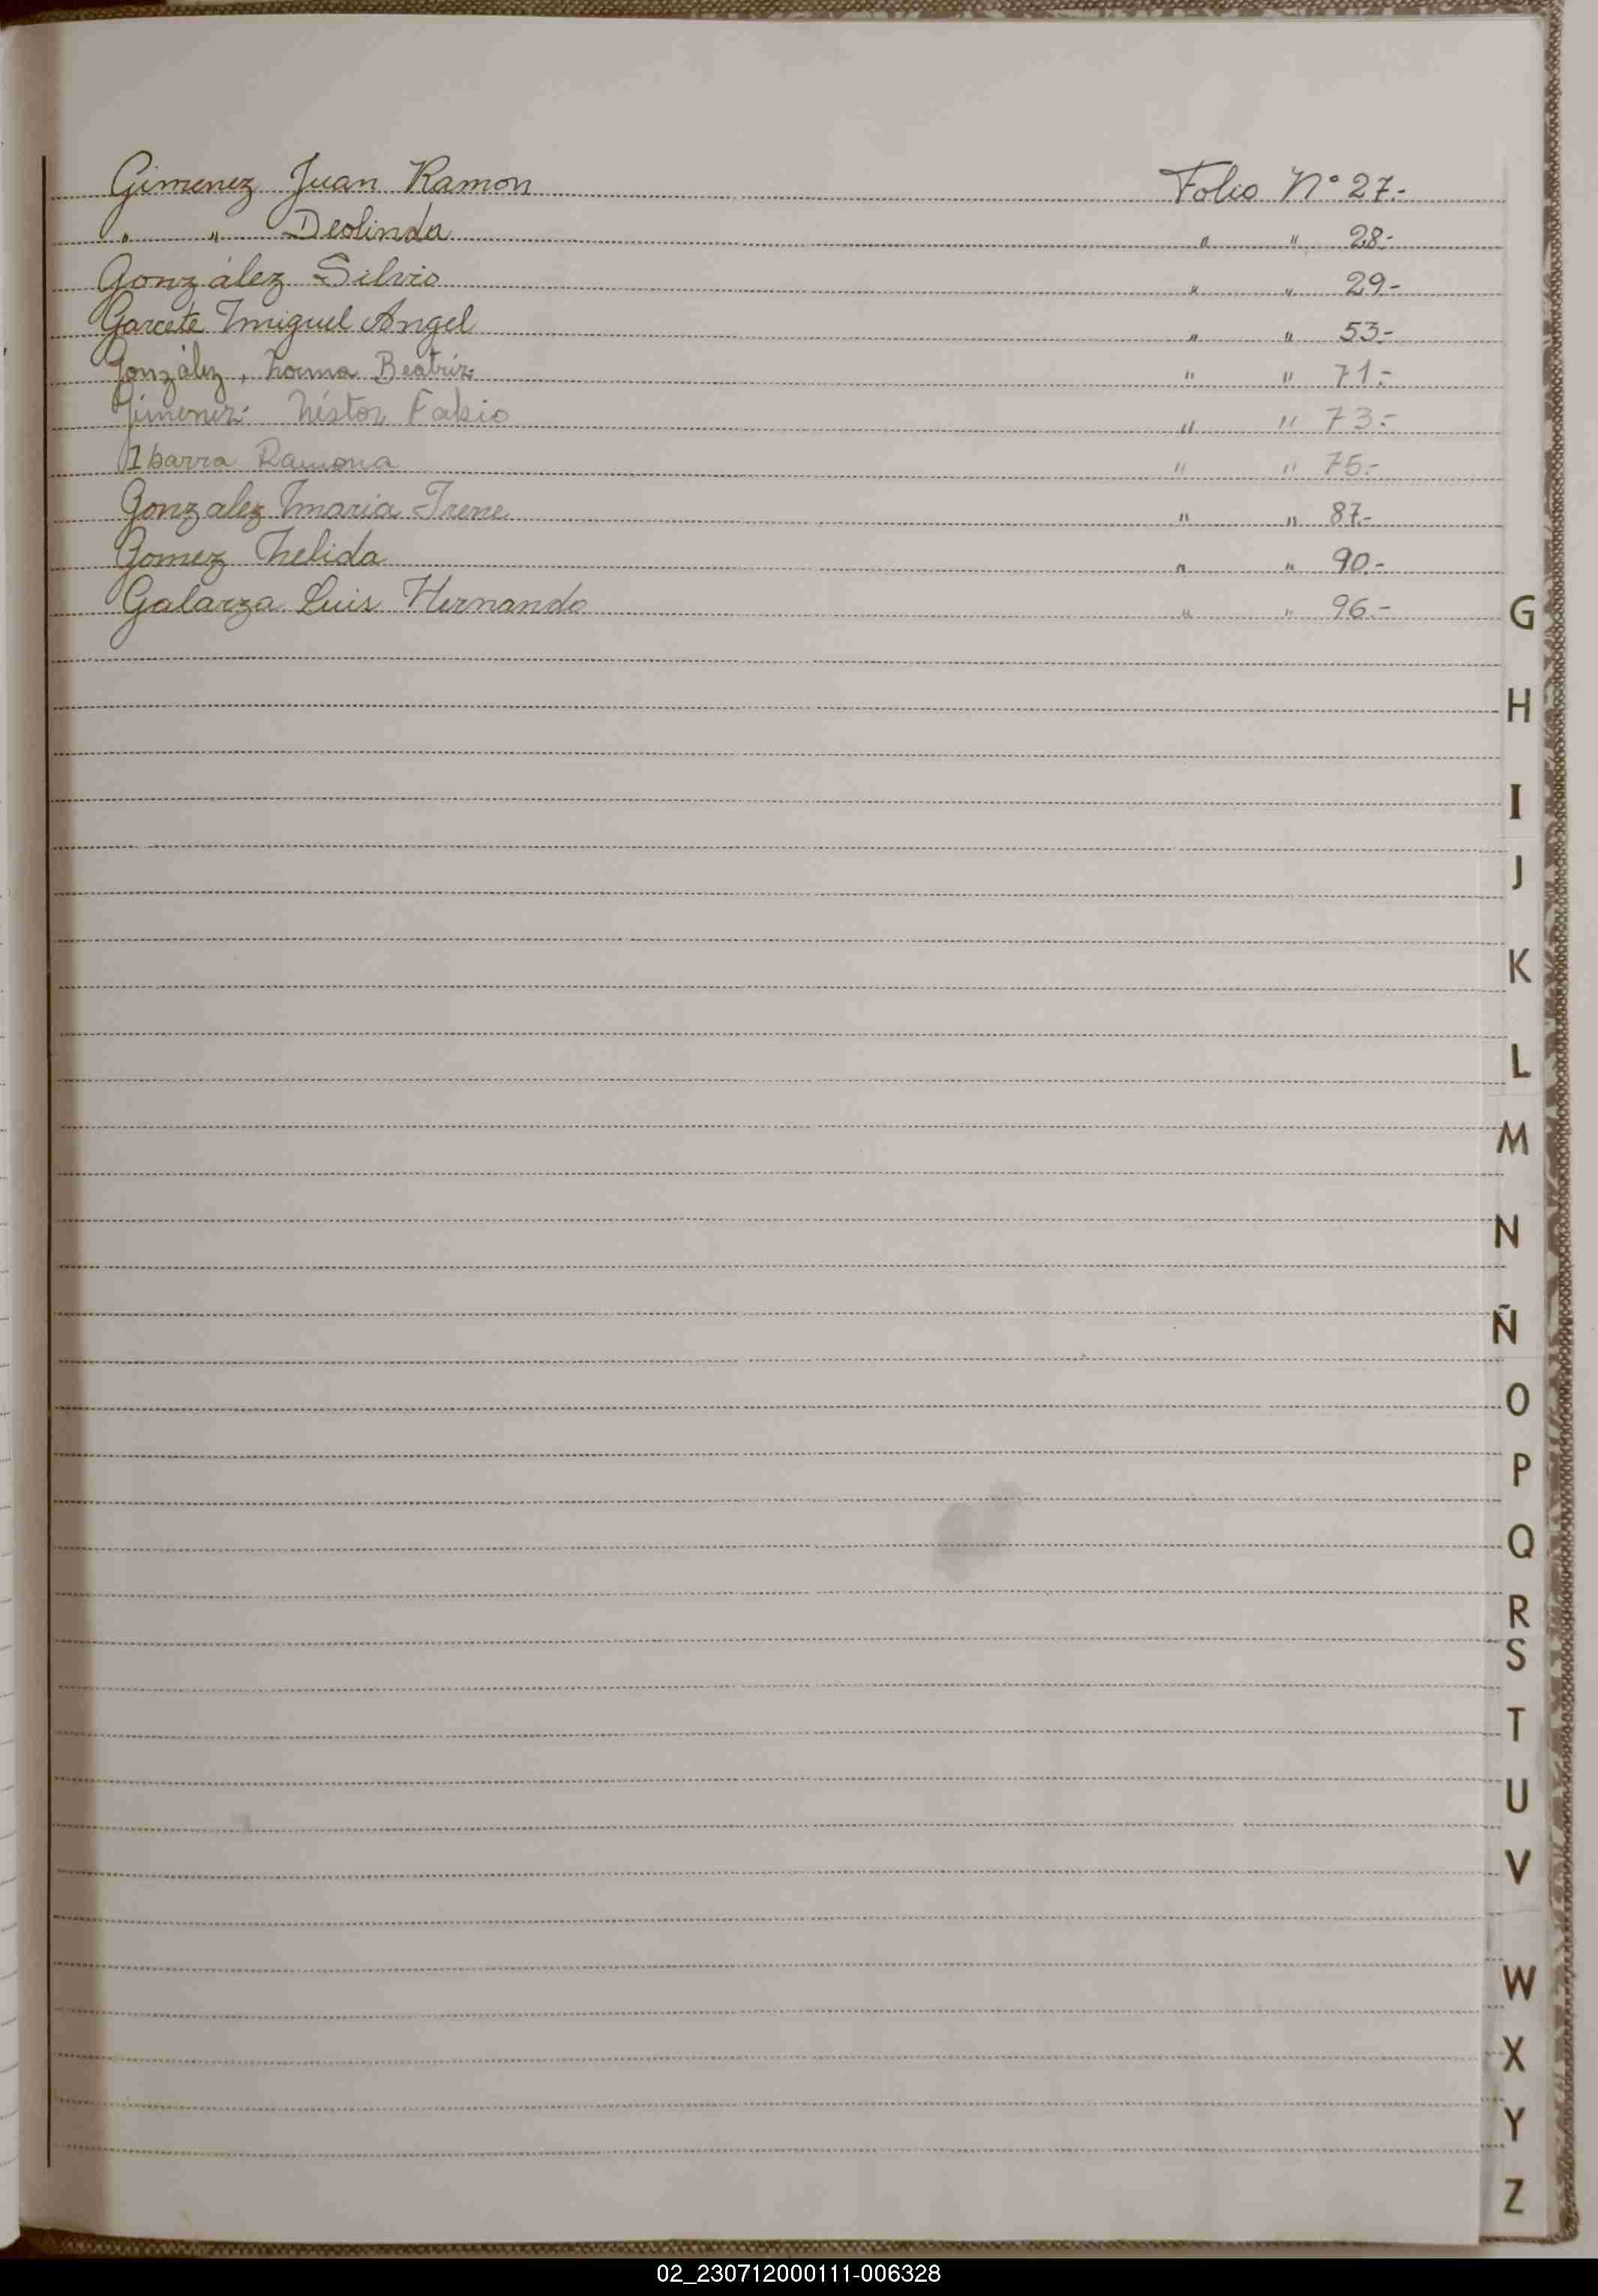 Gimenez Juan Ramon Folio Nº 27.-
" " Deolinda " " 28.-
González Silvio " " 29.-
Garcete Miguel Angel " " 53.-
González, Norma Beatriz " " 71.-
Jimenez Néstor Fabio " " 73.-
Ibarra Ramona " " 75.-
Gonzalez Maria Irene " " 87.-
Gomez Nelida " " 90.-
Galarza Luis Hernando " " 96.-
G
H
I
J
K
L
M
N
Ñ
O
P
Q
R
S
T
U
V
W
X
Y
Z
02_230712000111-006328